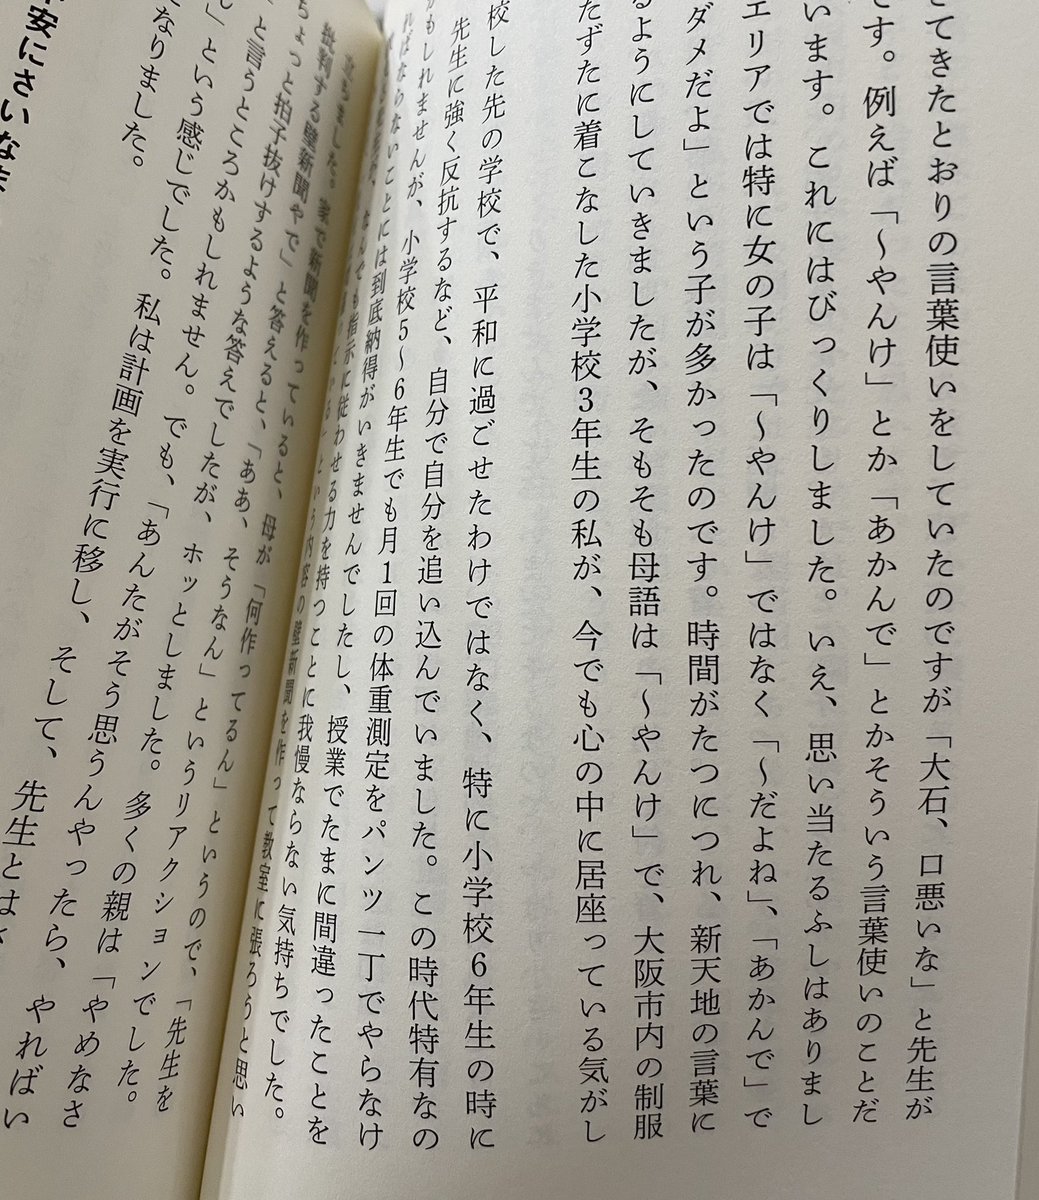 てきたとおりの言葉使いをしていたのですが「大石、口悪いな」と先生が
です。例えば「〜やんけ」とか「あかんで」とかそういう言葉使いのことだ
います。これにはびっくりしました。いえ、思い当たるふしはありまし
エリアでは特に女の子は「〜やんけ」ではなく「〜だよね」、「あかんで」で
ダメだよ」という子が多かったのです。時間がたつにつれ、新天地の言葉に
るようにしていきましたが、そもそも母語は「〜やんけ」で、大阪市内の制服
たずたに着こなした小学校3年生の私が、今でも心の中に居座っている気がし
校した先の学校で、平和に過ごせたわけではなく、特に小学校6年生の時に
先生に強く反抗するなど、自分で自分を追い込んでいました。この時代特有の
かもしれませんが、小学校5〜6年生でも月1回の体重測定をパンツ一丁でやらなけ
ればならないことには到底納得がいきませんでしたし、授業でたまに間違ったことを
なんでも指示に従わせる力を持つことに我慢ならない気持ちでした。
という内容の壁新聞を作って教室に張ろうと思い
立ちました。家で新聞を作っていると、母が「何作ってるん」というので、「先生を
批判する壁新聞やで」と答えると、「ああ、そうなん」というリアクションでした。
ちょっと拍子抜けするような答えでしたが、ホッとしました。多くの親は「やめなさ
」と言うところかもしれません。でも、「あんたがそう思うんやったら、やればい
ん」という感じでした。私は計画を実行に移し、そして、先生とはさ
なりました。
不安にさいなま